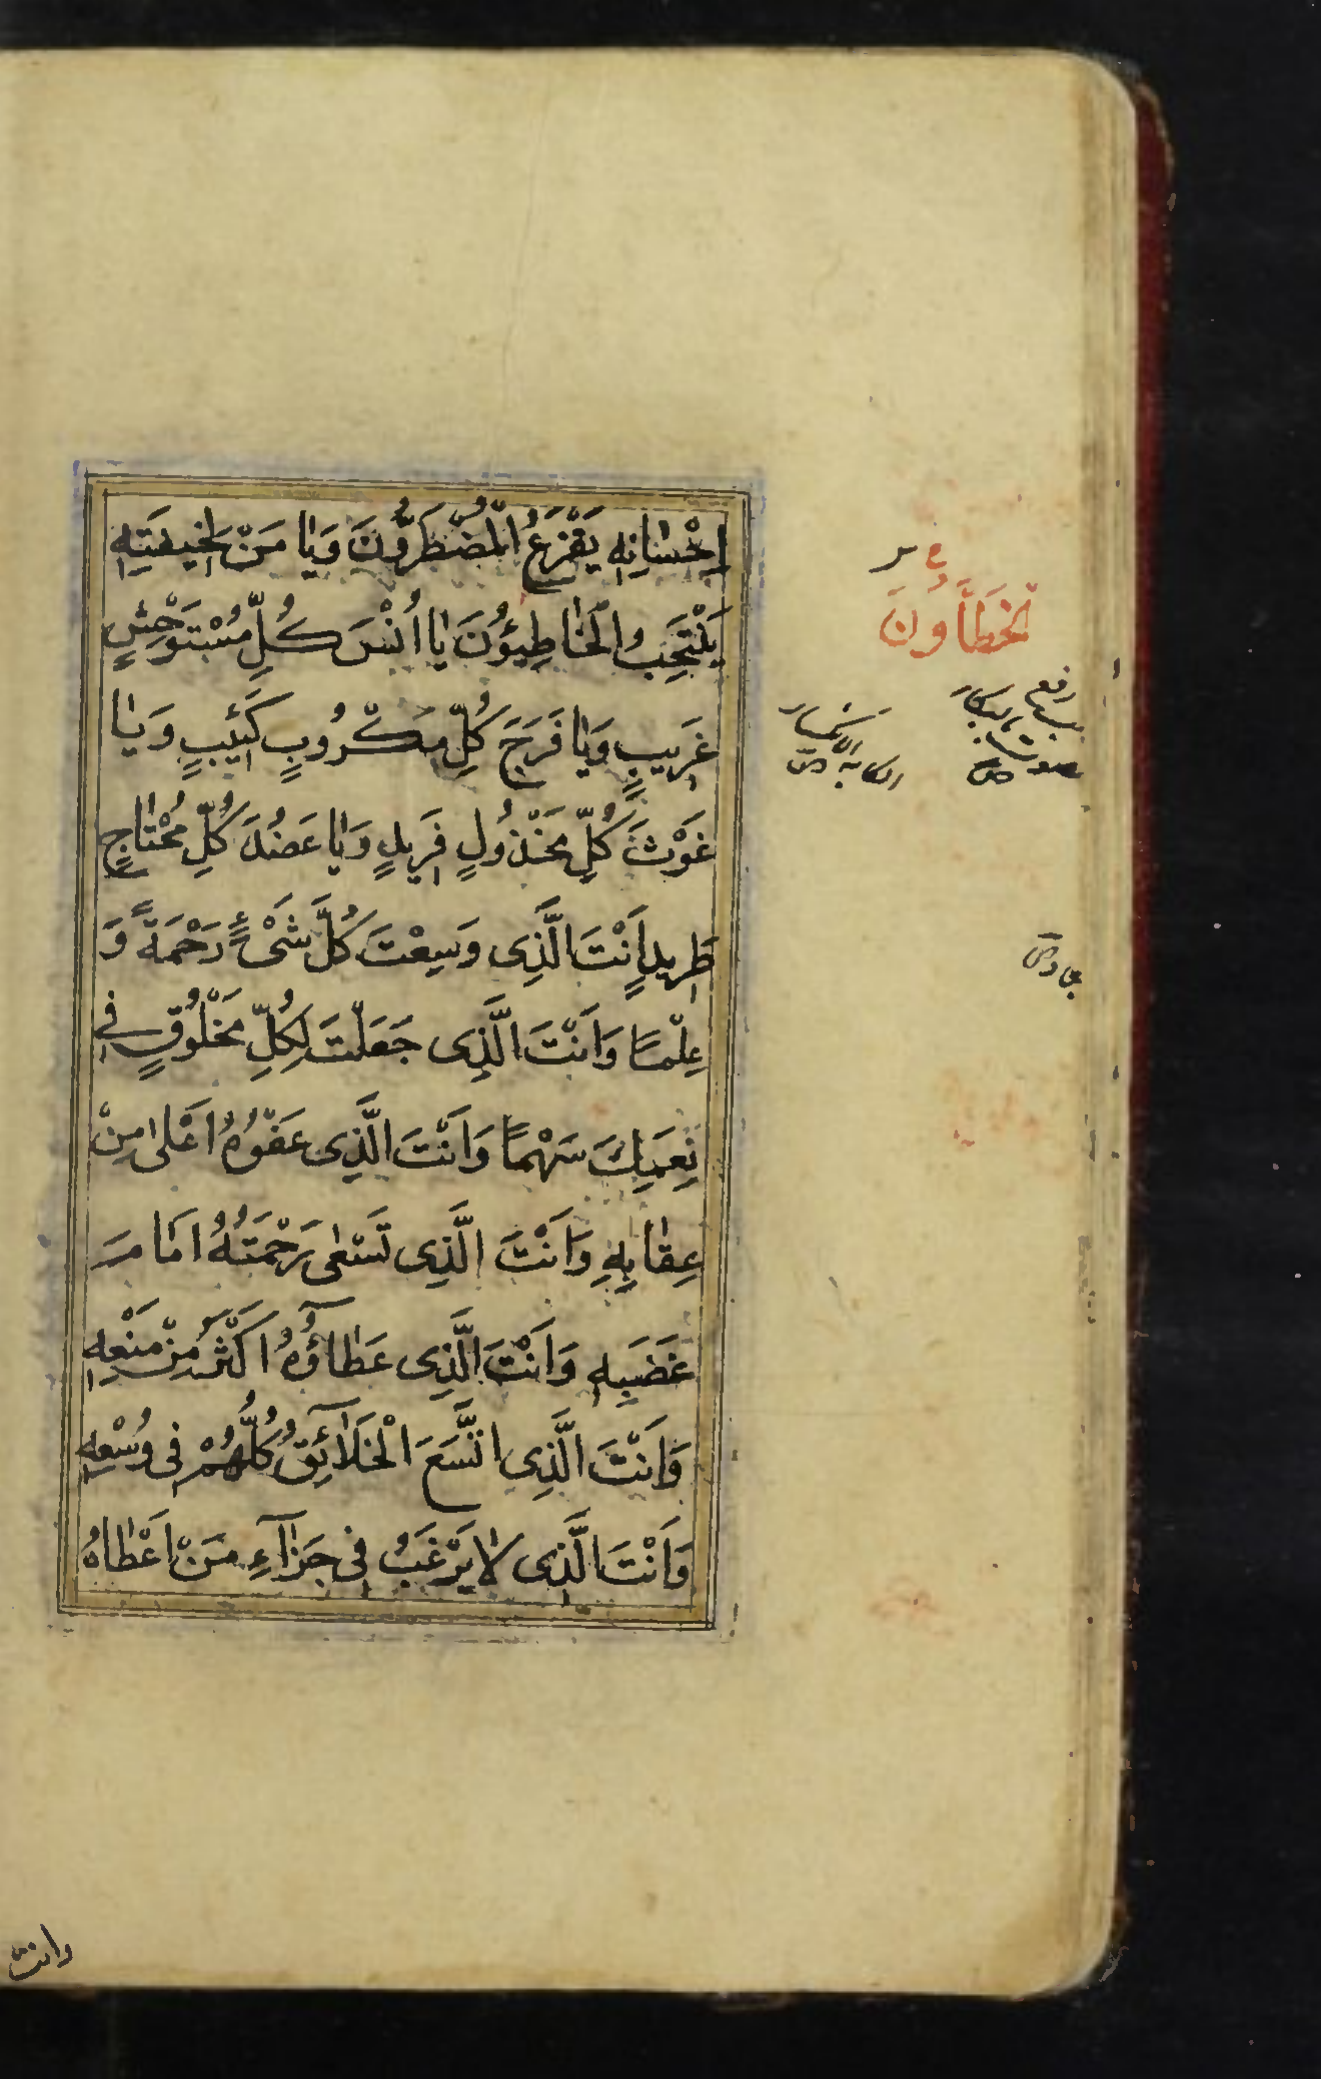 اِحْسٰانِهِ يَفْزَعُ الْمُضْطَرُّونَ وَيٰا مَنْ لِخيفَتِهِ
يَنْتَحِبُ الْخٰاطِئُونَ يٰا اُنْسَ كُلِّ مُسْتَوْحِشٍ
غَرِيبٍ وَيٰا فَرَجَ كُلِّ مَكْرُوبٍ كَئيبٍ وَيٰا
غَوْثَ كُلِّ مَخْذُولٍ فَرِيدٍ وَيٰا عَضُدَ كُلِّ مُحْتٰاجٍ
طَرِيدٍ اَنْتَ الَّذِى وَسِعْتَ كُلَّ شَىْءٍ رَحْمَةً وَ
عِلْماً وَاَنْتَ الَّذِى جَعَلْتَ لِكُلِّ مَخْلُوقٍ فِى
نِعَمِكَ سَهْماً وَاَنْتَ الَّذِى عَفْوُهُ اَعْلىٰ مِنْ
عِقٰابِهِ وَاَنْتَ الَّذِى تَسْعىٰ رَحْمَتُهُ اَمٰامَ
غَضَبِهِ وَاَنْتَ الَّذِى عَطٰآؤُهُ اَكْثَرُ مِنْ مَنْعِهِ
وَاَنْتَ الَّذِى اتَّسَعَ الْخَلٰآئِقُ كُلُّهُمْ فِى وُسْعِهِ
وَاَنْتَ الَّذِى لٰا يَرْغَبُ فِى جَزٰآءِ مَنْ اَعْطٰاهُ
الخَطَّاؤُنَ
وانت